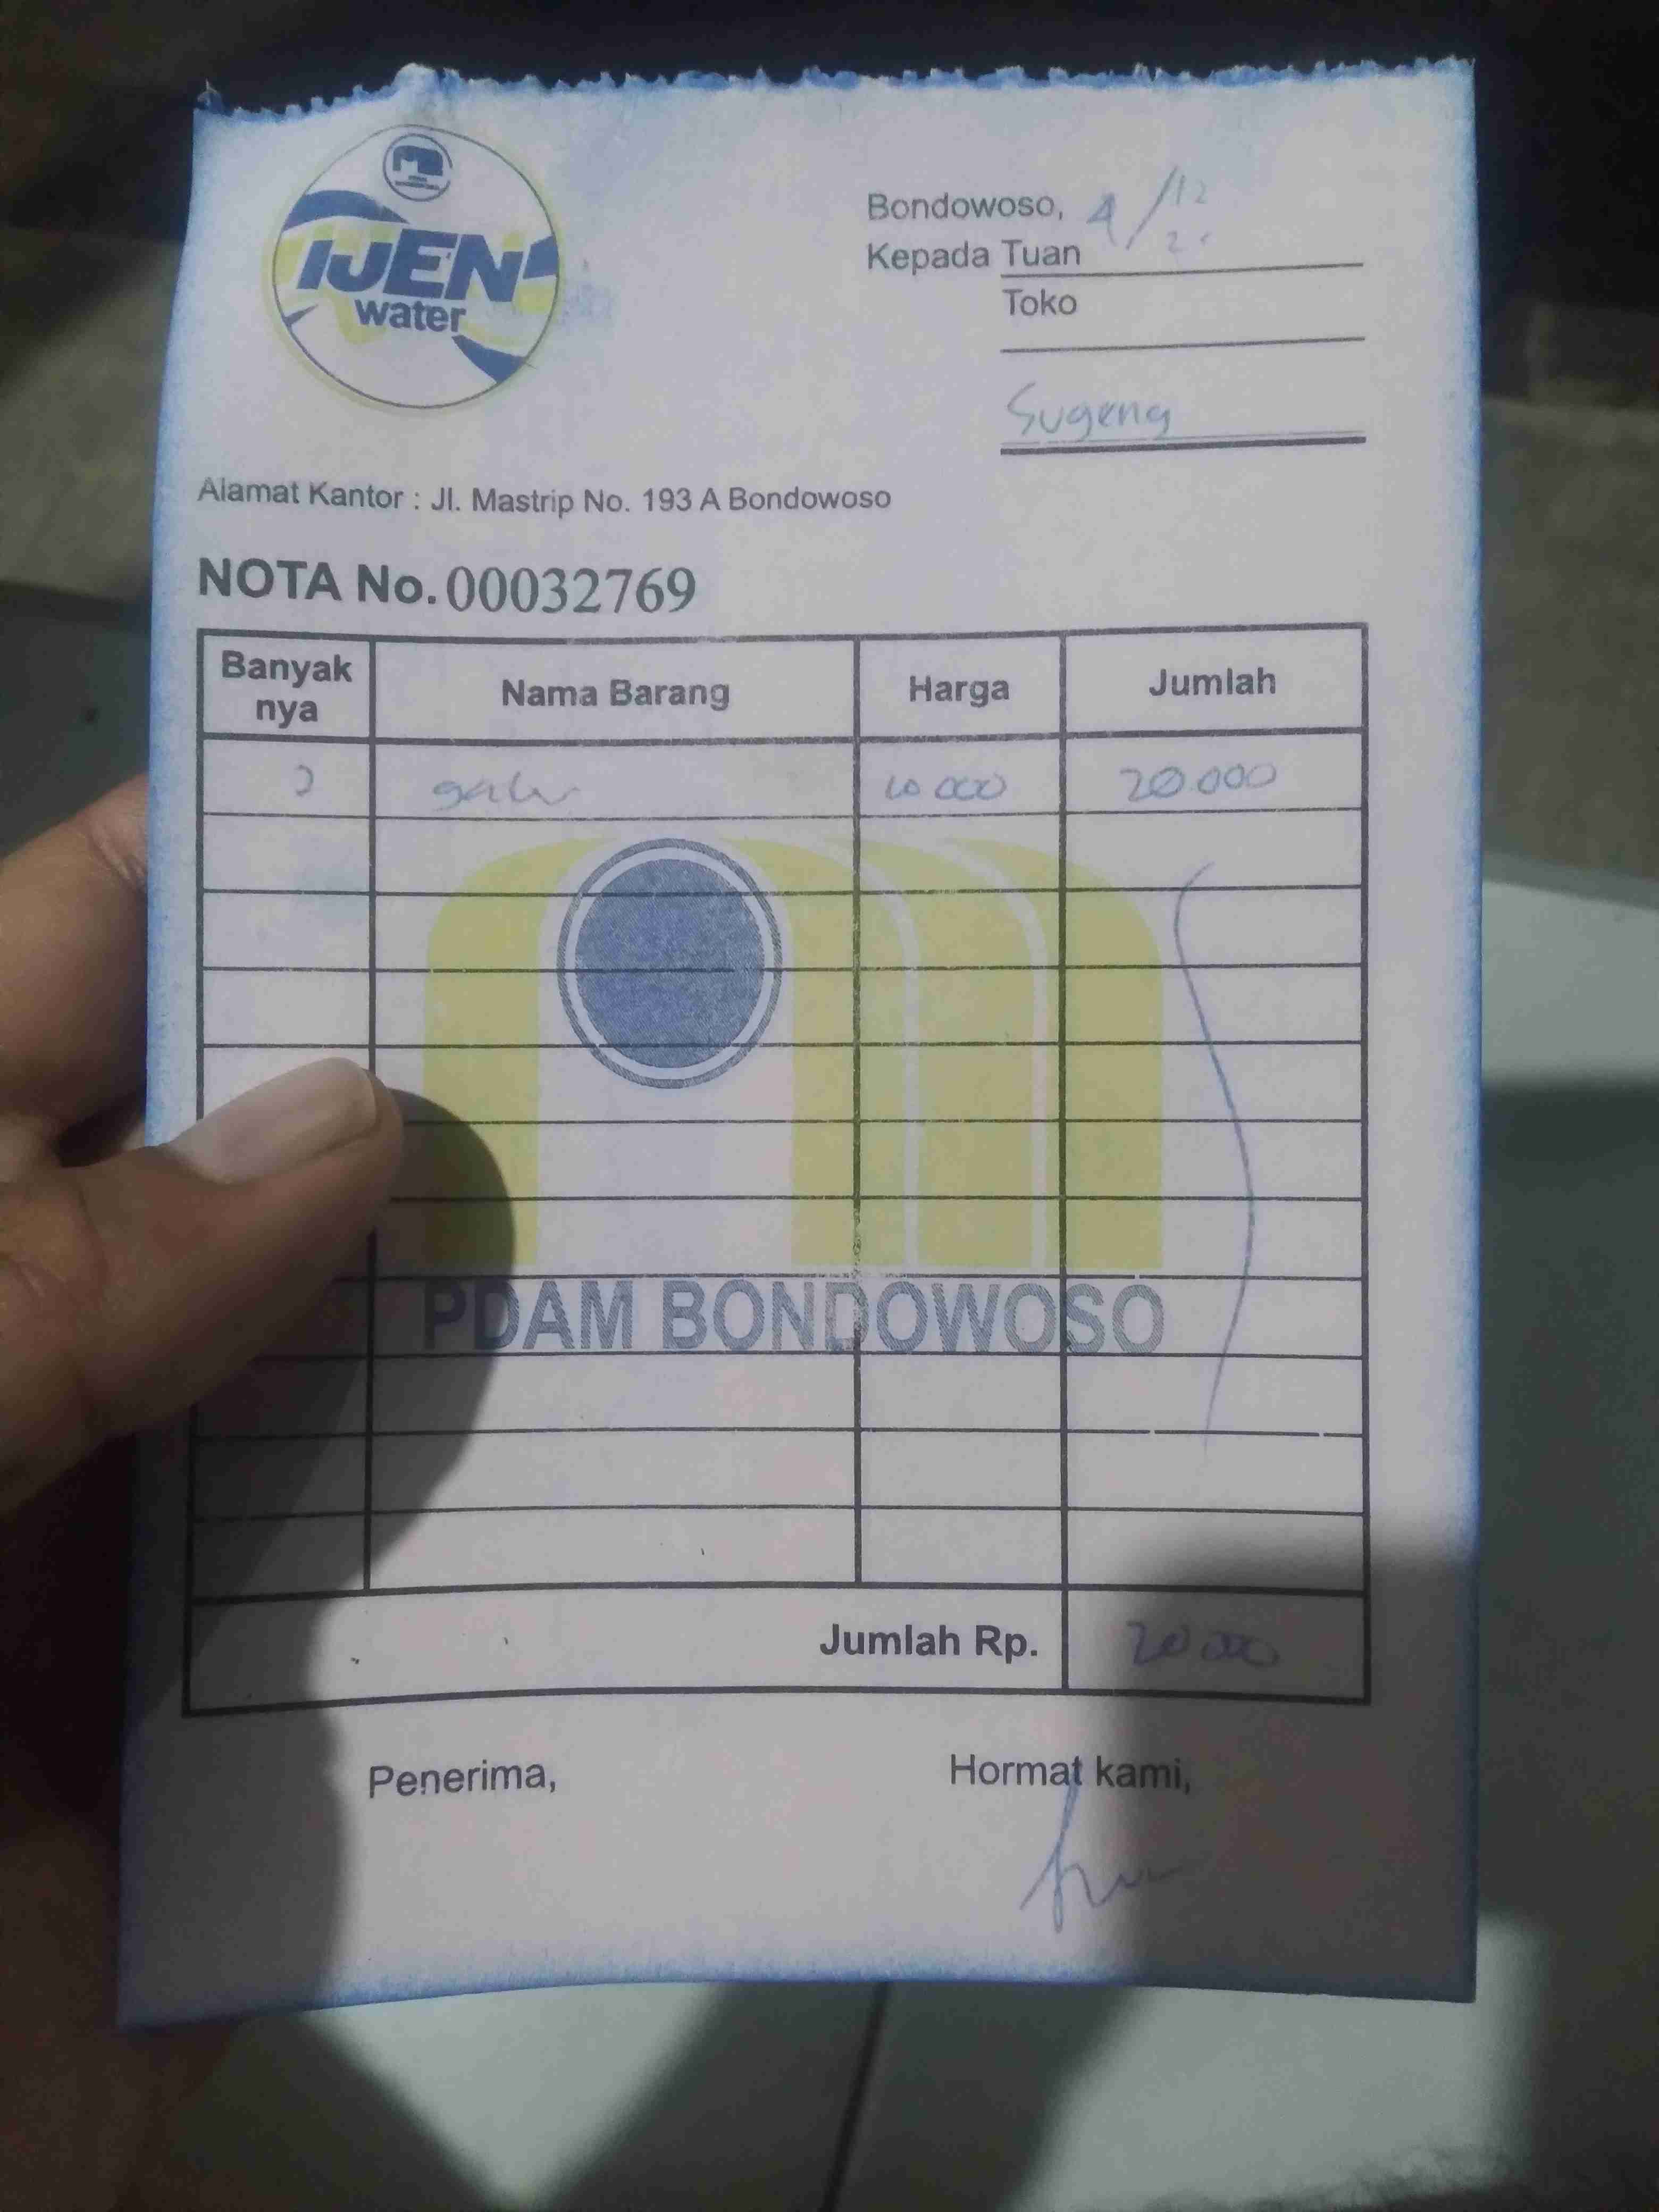 IJEN
water
Bondowoso, 4/12
Kepada Tuan
Toko
Sugeng
Alamat Kantor : Jl. Mastrip No. 193 A Bondowoso
NOTA No. 00032769
Banyak nya Nama Barang Harga Jumlah
2 10 000 20.000
PDAM BONDOWOSO
Jumlah Rp. 20 000
Penerima, Hormat kami,